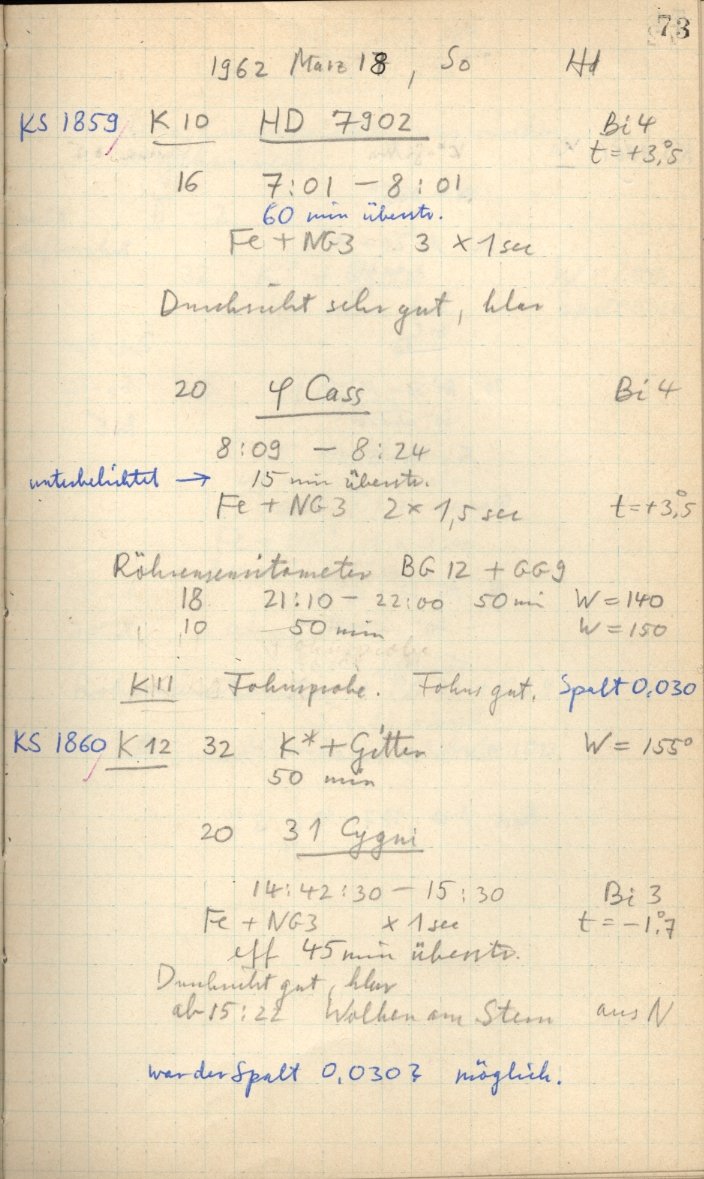 73
1962 März 18, So Hd
KS 1859 K 10 HD 7902 Bi 4
t = +3,°5
16 7:01 – 8:01
60 min überstr.
Fe + NG3 3 × 1 sec
Durchsicht sehr gut, klar
20 φ Cass Bi 4
8:09 – 8:24
unterbelichtet → 15 min überstr.
Fe + NG3 2 × 1,5 sec t = +3,°5
Röhrensensitometer BG 12 + GG9
18 21:10 – 22:00 50 min W = 140
10 50 min W = 150
K 11 Fokusprobe. Fokus gut. Spalt 0,030
KS 1860 K 12 32 K* + Gitter W = 155°
50 min
20 31 Cygni
14:42:30 – 15:30 Bi 3
Fe + NG3 × 1 sec t = –1,°7
eff 45 min überstr.
Durchsicht gut, klar
ab 15:22 Wolken am Stern aus N
war der Spalt 0,030? möglich.